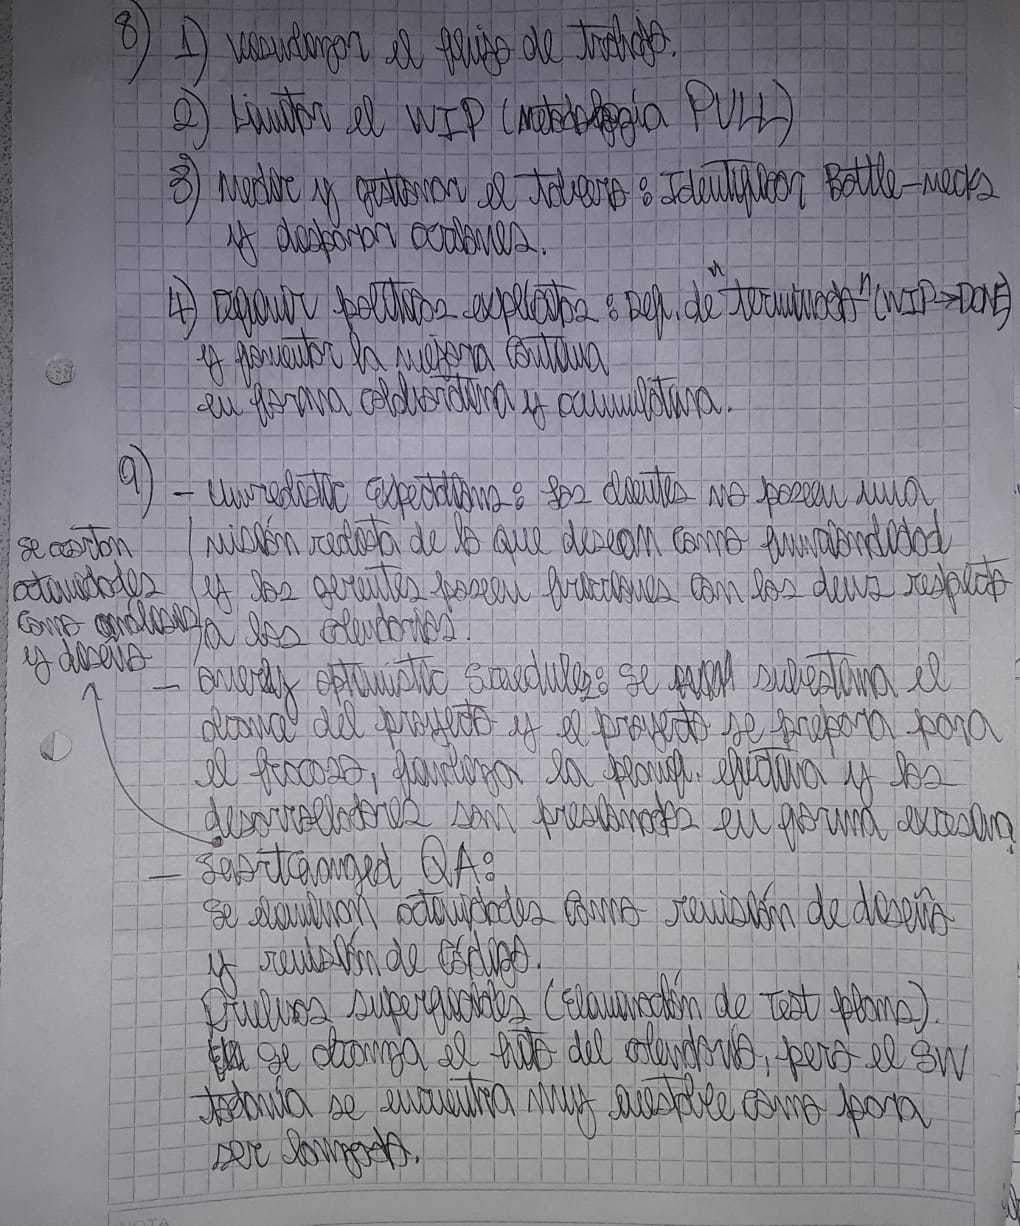 8) 1) visualizar el flujo de trabajo.
2) Limitar el WIP (metodología PULL)
3) Medir y gestionar el tablero : Identificar Bottle-necks
y disparar acciones.
4) políticas explícitas : Def. de "terminado" (WIP→DONE)
y fomentar la mejora continua
en forma colaborativa y acumulativa.
9) - Unrealistic expectations : los clientes no poseen una
visión realista de lo que desean como funcionalidad
y los gerentes poseen fricciones con los devs respecto
a los calendarios.
se acortan
actividades
como analisis
y diseño
- overly optimistic schedules : se subestima el
alcance del proyecto y el proyecto se prepara para
el fracaso, la planif. efectiva y los
desarrolladores son presionados en forma excesiva.
- Shortchanged QA :
se eliminan actividades como revisión de diseño
y revisión de código.
Pruebas superficiales (eliminación de test plans).
se alcanza el hito del calendario, pero el SW
todavía se encuentra muy inestable como para
ser lanzado.
NOTA